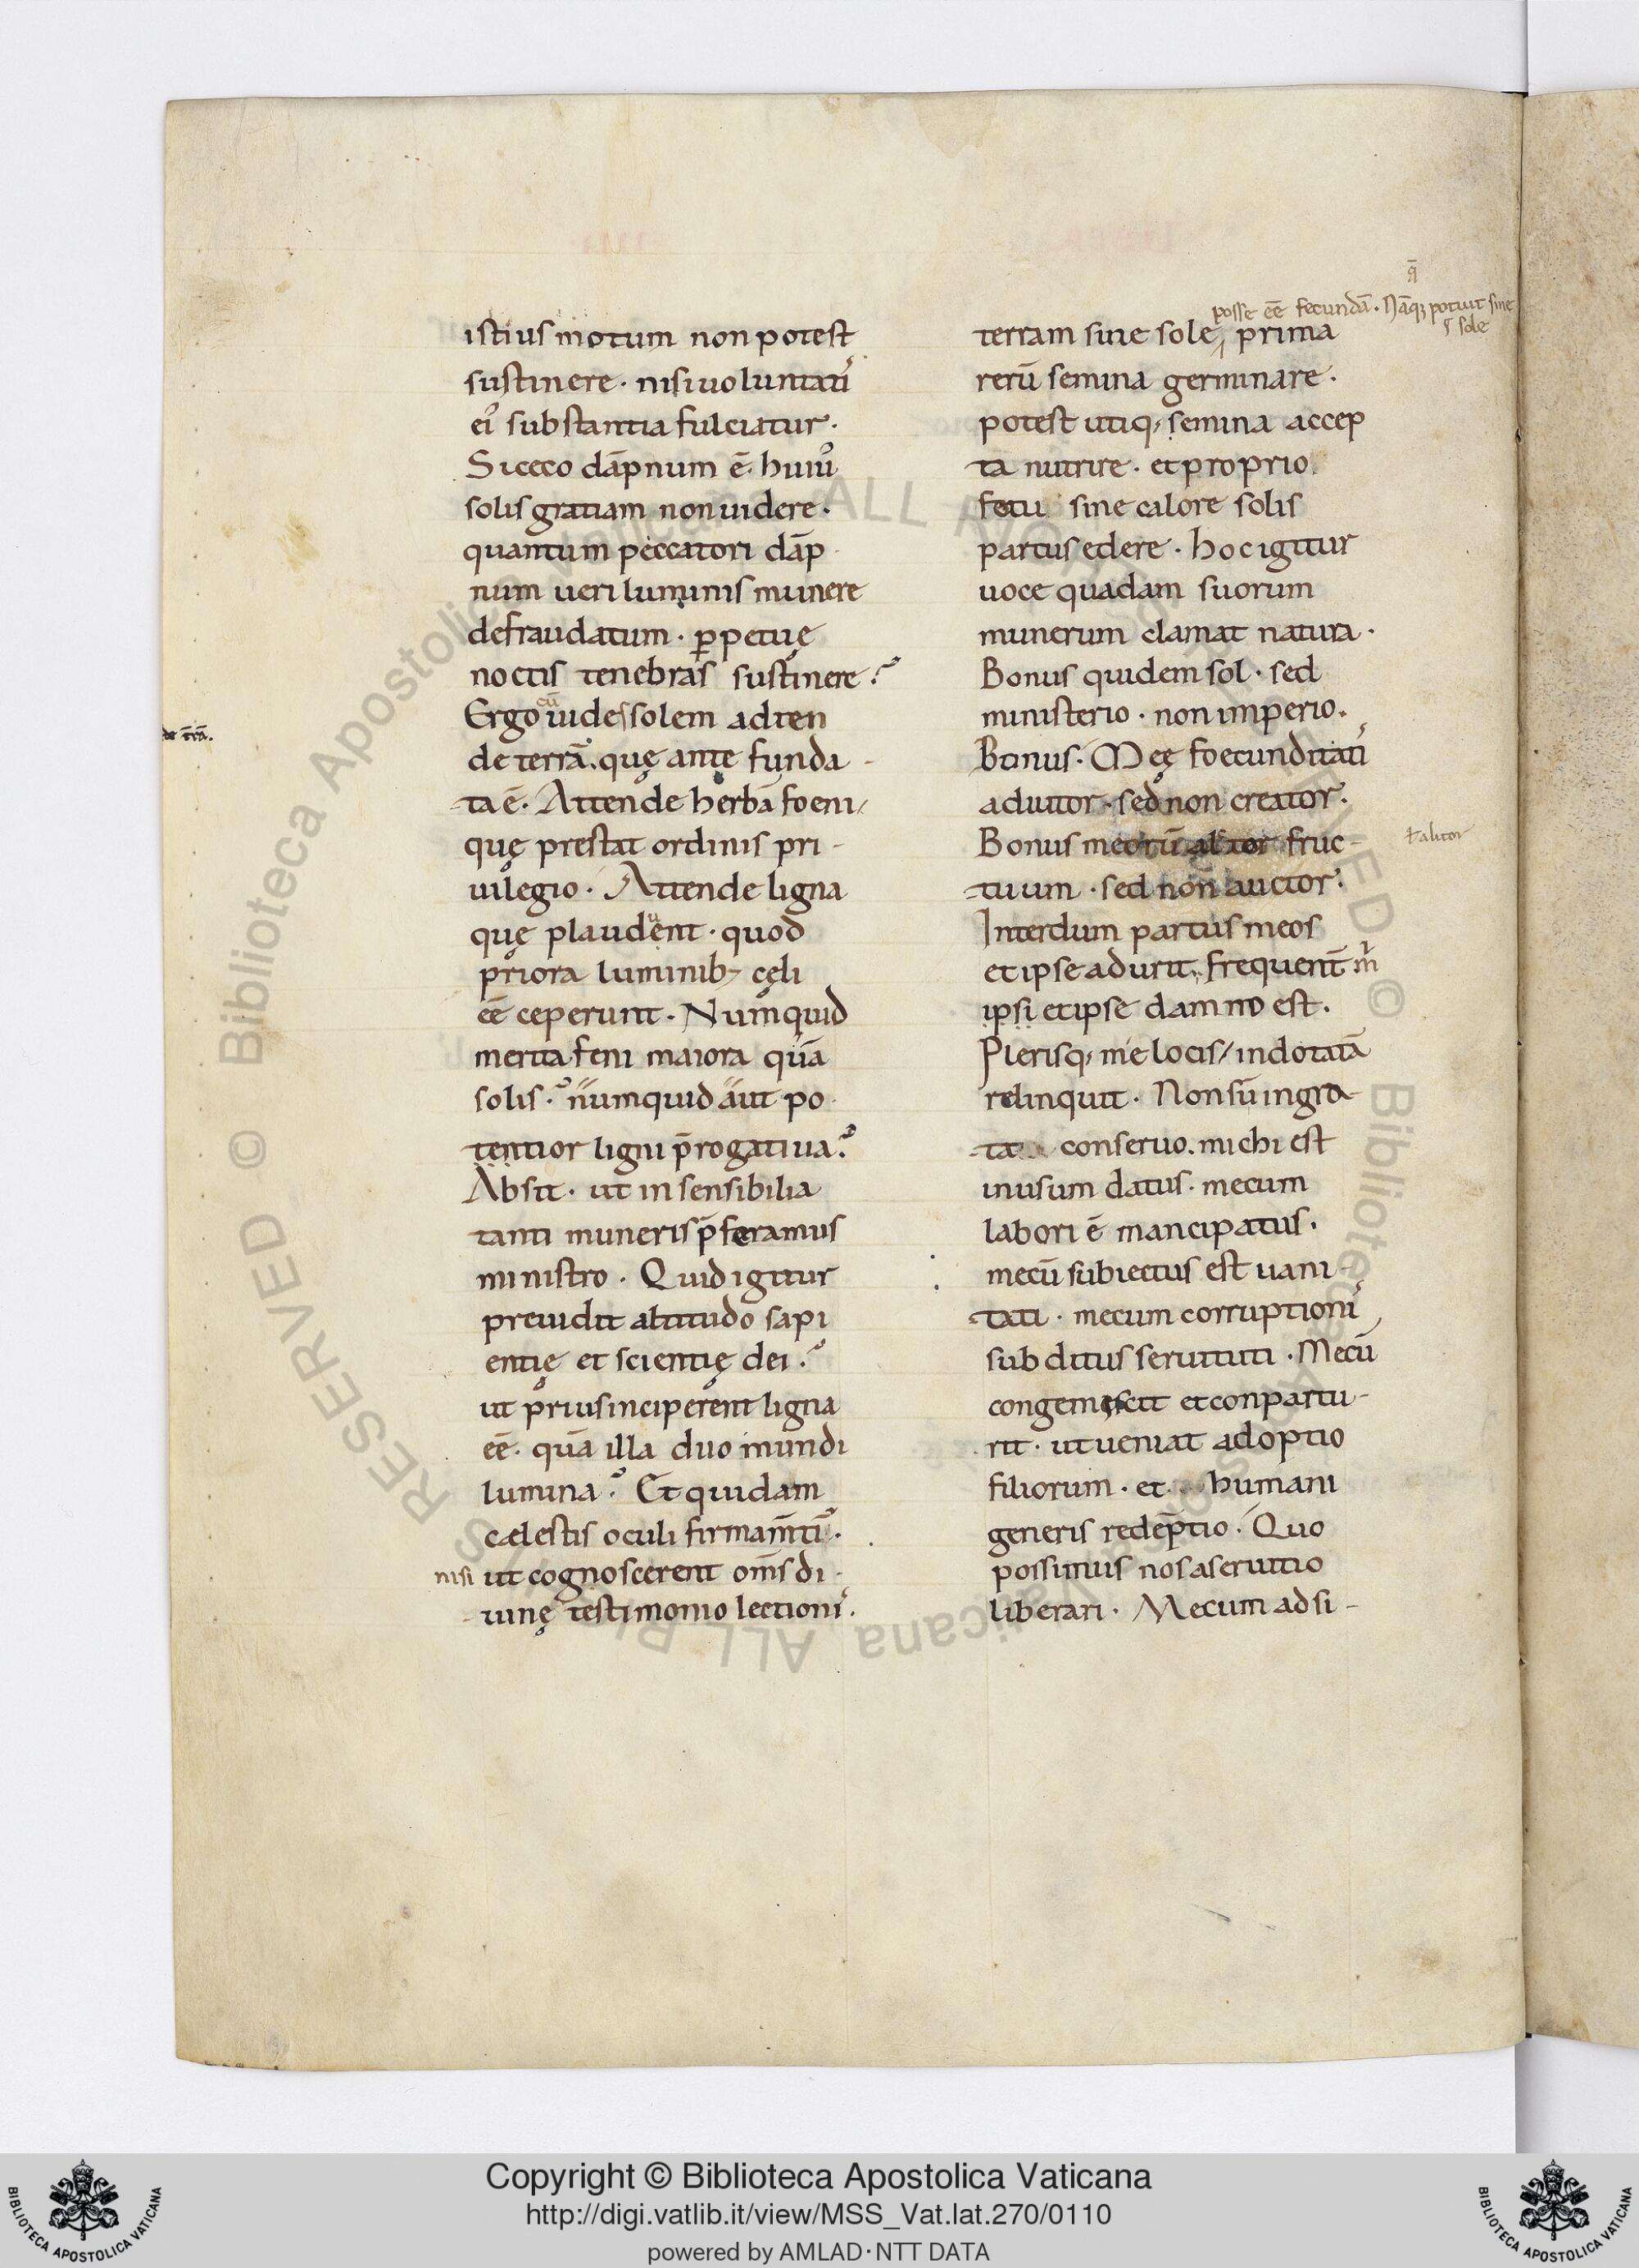 istius motum non potest
sustinere · nisi uoluntatı᾽
ei᾽ substantia fulciatur·
Si ceco dāpnum ē· huiu᾽
solis gratiam non uidere·
quantum peccatori dāp
num ueri luminis munere
defraudatum · ꝑpetuę
noctis tenebras sustinere?
Ergo cū uides solem adten
de terrā· quę ante funda -
ta ē· Attende herbā foeni
quę prestat ordinis pri -
uilegio · Attende ligna
quę plaudent · quod
priora luminib; cęli
eē ceperunt · Numquid
merita feni maiora quā
solis? numquid aut po
tentior ligni p̄rogatiua?
Absit · ut insensibilia
tanti muneris p̄feramus
ministro · Quid igitur
preuidit altitudo sapi
entię et scientię dei?
ut prius inciperent ligna
eē· quā illa duo mundi
lumina? Et quidam
cælestis oculi firmam̄ti?
nisi ut cognoscerent om̄s di -
uinę testimonio lectioni᾽·
de trā·
posse eē fecundā · Nāq; potuit sine
sole
terram sine sole, prima
rerū semina germinare ·
potest utiq; semina accep
ta nutrire · et proprio
fotu sine calore solis
partus edere · hoc igitur
uoce quadam suorum
munerum clamat natura ·
Bonus quidem sol · sed
ministerio · non imperio·
Bonus · Meę foecunditati᾽
adiutor · sed non creator·
Bonus meorū altor fruc -
tuum · sed non auctor·
ƚ alitor
Interdum partus meos
et ipse adurit, frequent̄ m̄
ipsi et ipse damno est·
Plerisq; me locis / indotatā
relinquit · Non sū ingra -
ta conseruo· michi est
inusum datus· mecum
labori ē mancipatus·
mecū subiectus est uani -
tati · mecum corruptioni᾽
subditus seruituti · Mecū
congemiscit et conpartu -
rit · ut ueniat adoptio
filiorum · et humani
generis redēptio · Quo
possimus nos a seruitio
liberari · Mecum adsi -
© Biblioteca Apostolica Vaticana ALL RIGHTS RESERVED © Biblioteca Apostolica Vaticana ALL RIGHTS RESERVED
Copyright © Biblioteca Apostolica Vaticana
http://digi.vatlib.it/view/MSS_Vat.lat.270/0110
powered by AMLAD·NTT DATA
BIBLIOTECA APOSTOLICA VATICANA
BIBLIOTECA APOSTOLICA VATICANA